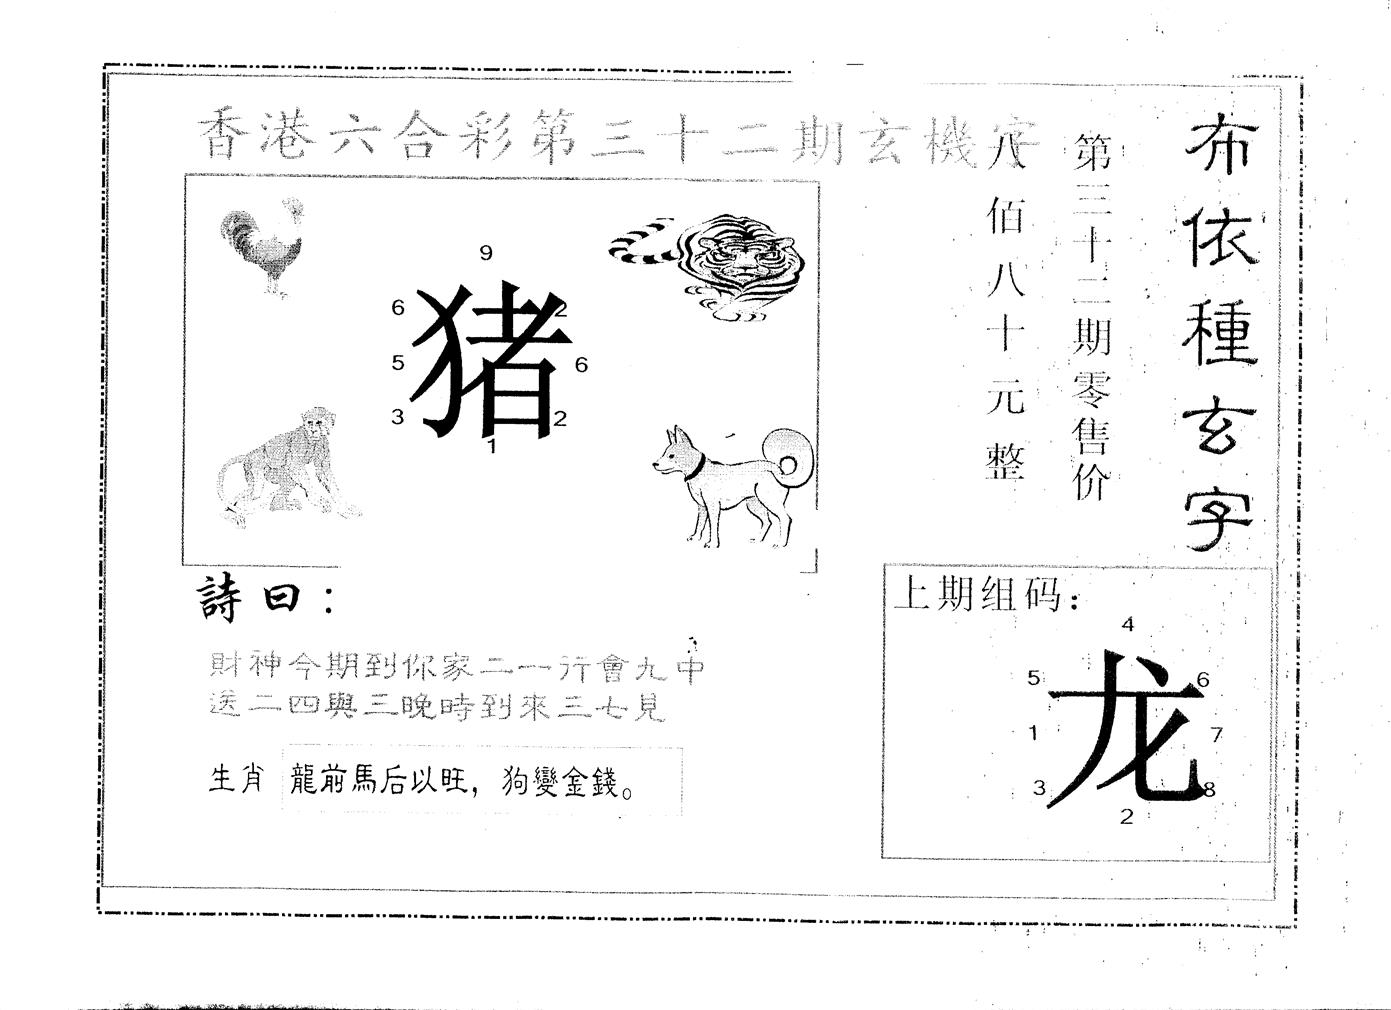 香港六合彩第三十二期玄機字
布依種玄字
第三十二期零售价
八佰八十元整
9
6
2
猪
5
6
3
2
1
詩曰：
財神今期到你家二一行會九中
送二四與三晚時到來三七見
生肖 龍前馬后以旺，狗變金錢。
上期组码：
4
5
6
龙
1
7
3
8
2